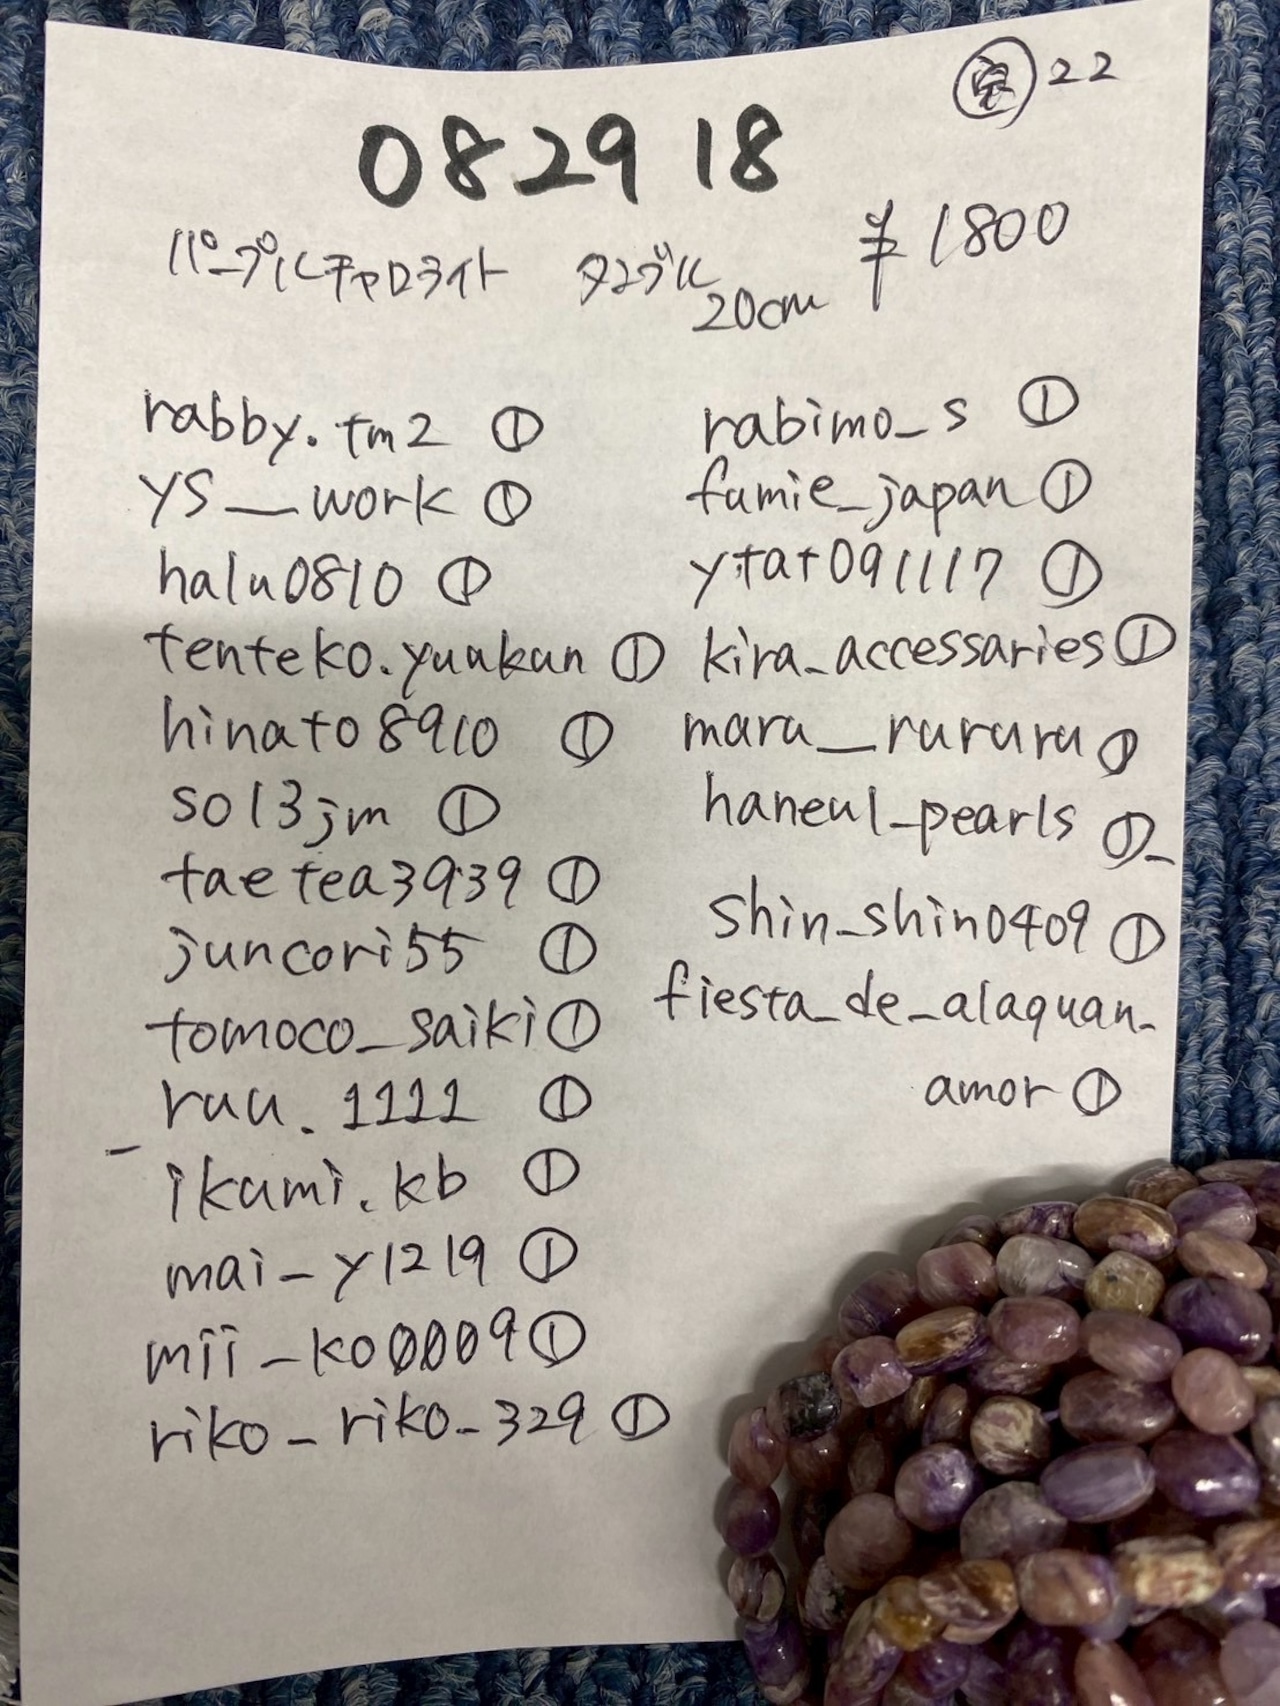 完 22
0829 18
パープルチャロライト タンブル 20cm ¥1800
rabby.tm2 ①
ys__work ①
halu0810 ①
tenteko.yuukun ①
hinato8910 ①
sol3jm ①
taetea3939 ①
juncori55 ①
tomoco_saiki ①
ruu.1111 ①
ikumi.kb ①
mai_y1219 ①
mii_ko0009 ①
riko_riko_329 ①
rabimo_s ①
fumie_japan ①
ytat091117 ①
kira_accessaries ①
maru__rururu ①
haneul_pearls ①
shin_shin0409 ①
fiesta_de_alaquan_
amor ①